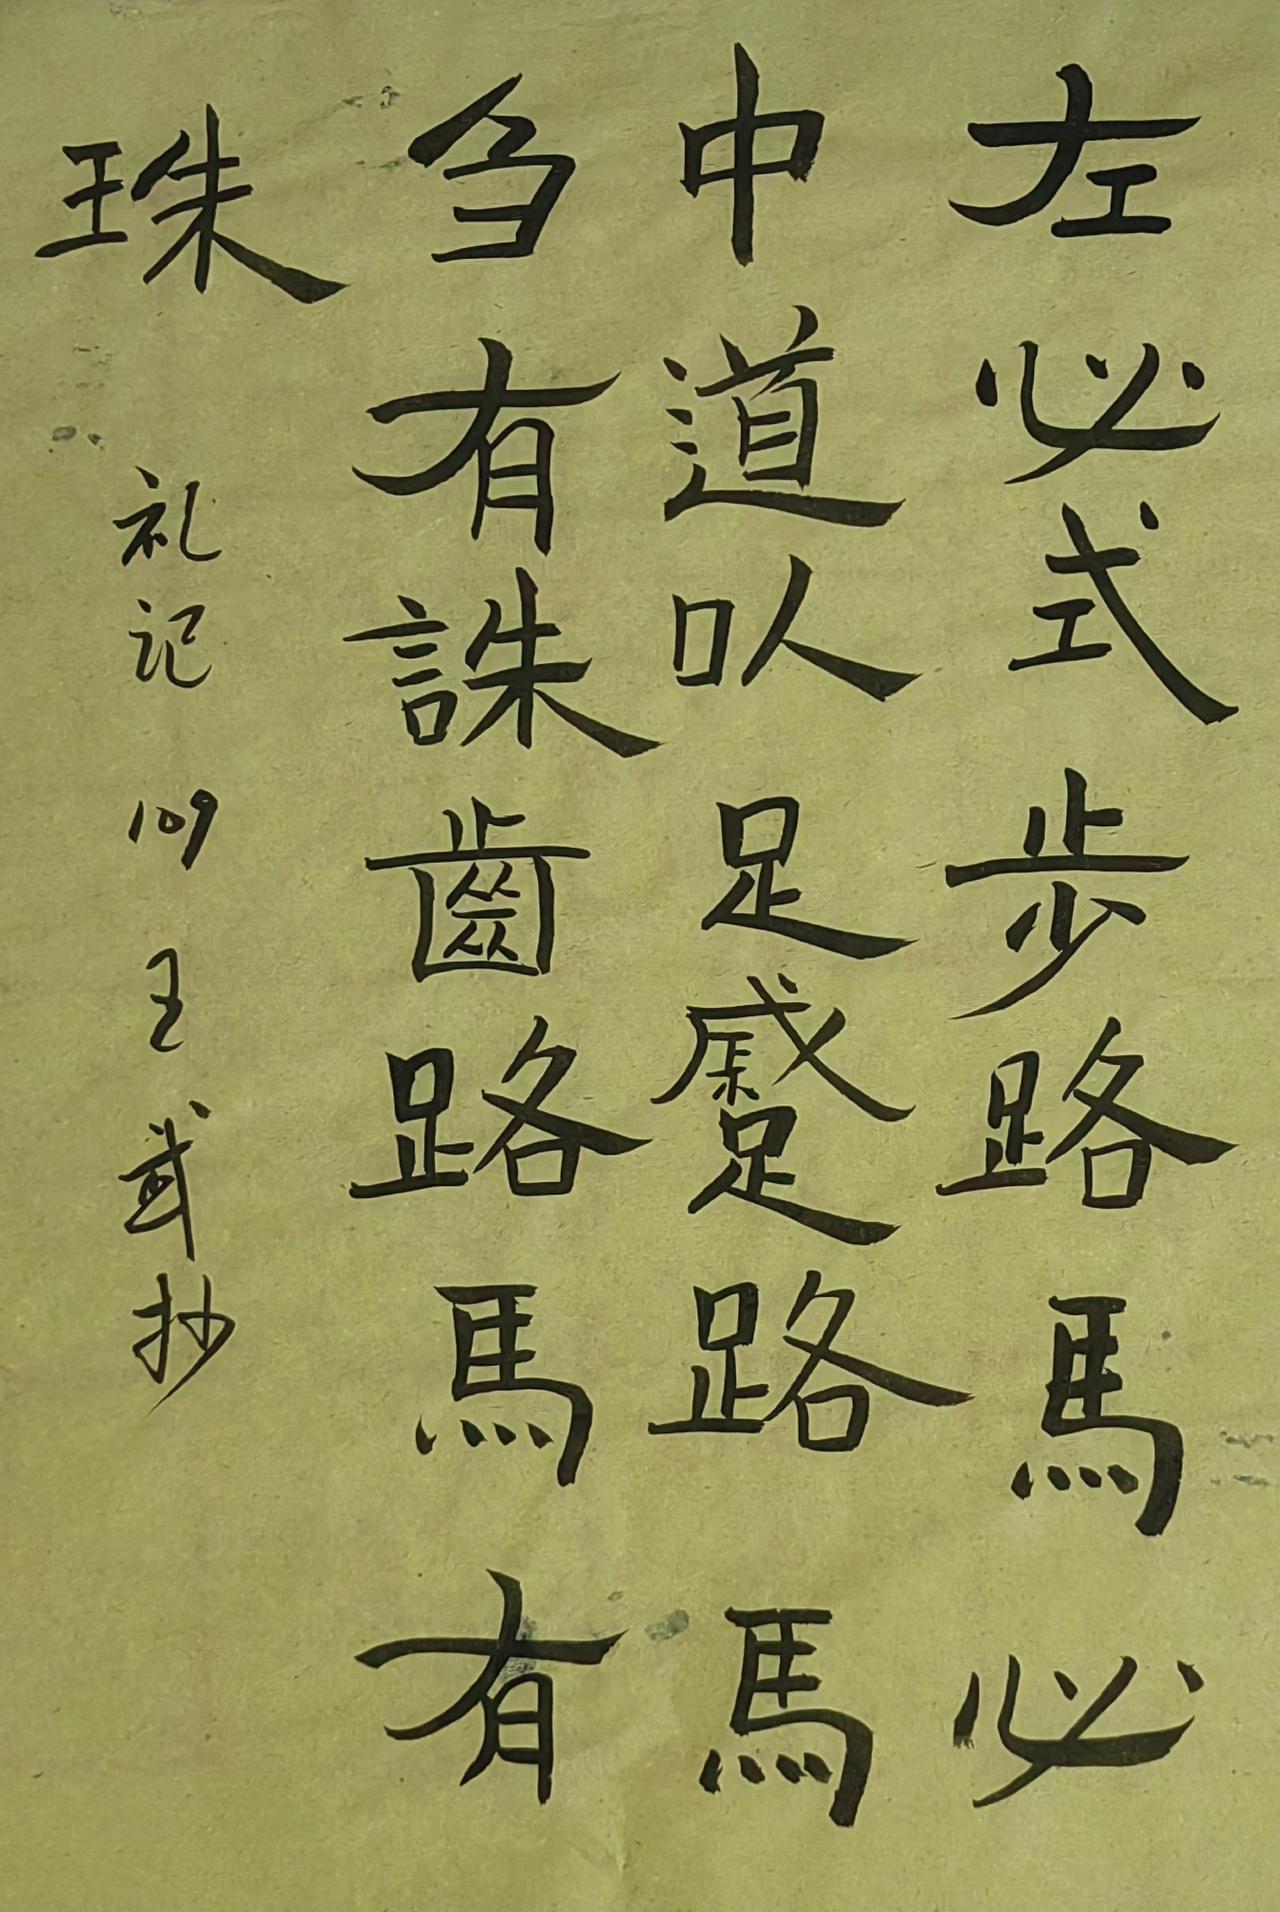 左必式步路馬必
中道以足蹙路馬
刍有誅齒路馬有
珠
礼记 109 王武抄